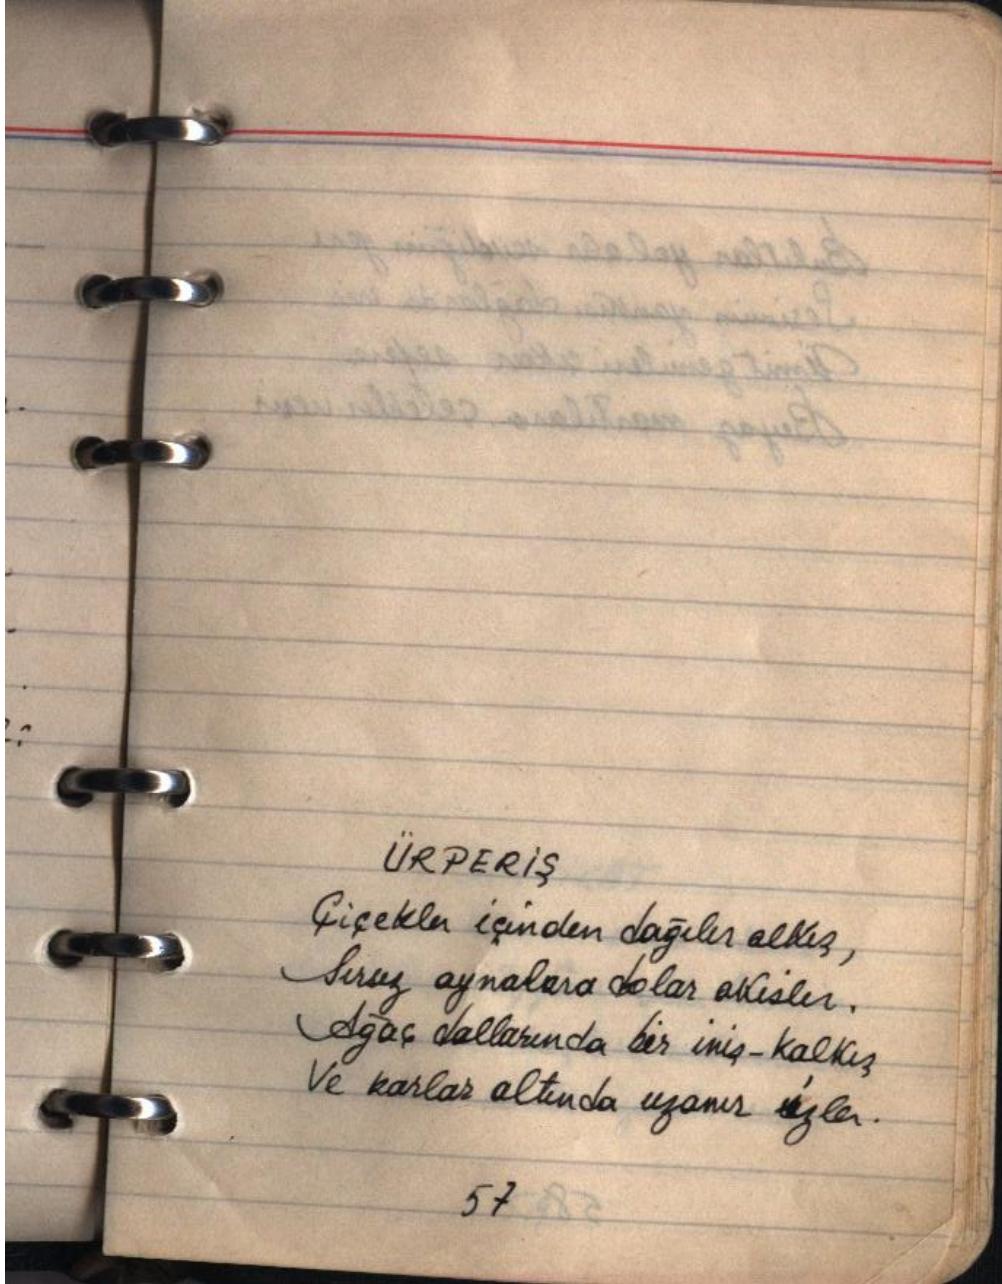 ÜRPERİŞ
Çiçekler içinden dağılır alkış,
Sırsız aynalara dolar akisler.
Ağaç dallarında bir iniş-kalkış
Ve karlar altında uzanır izler.
57